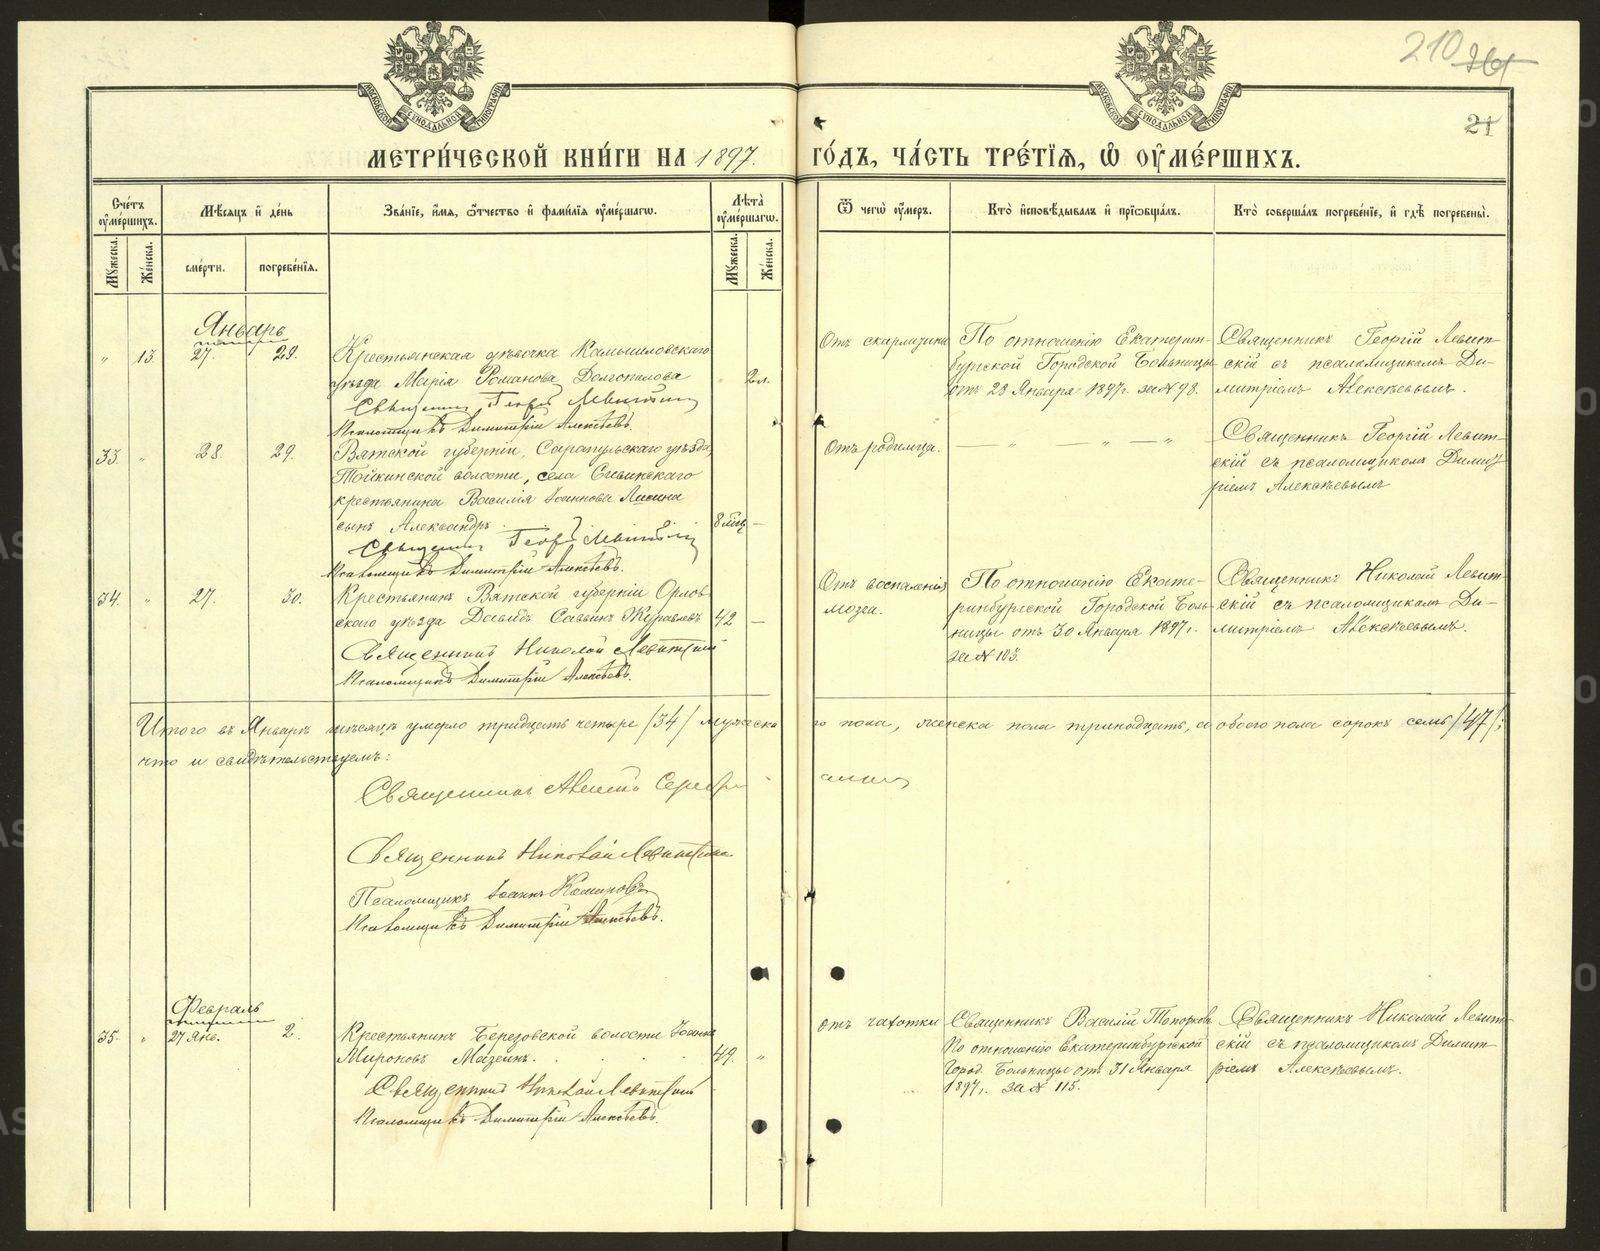 210 361
21
МОСКОВСКОЙ СѴНОДАЛЬНОЙ ТИПОГРАФІИ
МОСКОВСКОЙ СѴНОДАЛЬНОЙ ТИПОГРАФІИ
МЕТРИ́ЧЕСКОЙ КНИ́ГИ НА 1897.
ГО́ДЪ, ЧА́СТЬ ТРЕ́ТІЯ, Ѡ ОУМЕ́РШИХЪ.
Сче́тъ оуме́ршихъ.
Мѣсяцъ и де́нь
Зва́ніе, и́мя, ѻ́тчество и фами́лія оуме́ршагѡ.
Лѣта̀ оуме́ршагѡ.
Ѿ чегѡ̀ оу́меръ.
Кто̀ и҆сповѣ́дывалъ и҆ прїѡбща́лъ.
Кто̀ соверша́лъ погребе́ніе, и҆ гдѣ̀ погребены̀.
Мꙋжеска.
Же́нска.
сме́рти.
погребе́нія.
Мꙋжеска.
Же́нска.
Январь
„ 13. 27. 29.
Крестьянская дѣвочка Камышловскаго
уѣзда Марія Романова Долгополова
„ 2 л.
Священникъ Георгій Левитскій
Псаломщикъ Димитрій Алексѣевъ.
Отъ скарлатины
По отношенію Екатерин-
бургской Городской Больницы
отъ 28 Января 1897 г. за № 98.
Священникъ Георгій Левит-
скій съ псаломщикомъ Ди-
митріемъ Алексѣевымъ.
33. „ 28. 29.
Вятской губерніи, Сарапульскаго уѣзда
Тойкинской волости, села
крестьянина Василія Іоаннова Лисина
сынъ Александръ
8 мѣц —
Священникъ Георгій Левитскій
Псаломщикъ Димитрій Алексѣевъ.
Отъ родимца.
— „ — „ — „
Священникъ Георгій Левит-
скій съ псаломщикомъ Димит
ріемъ Алексѣевымъ
34. „ 27. 30.
Крестьянинъ Вятской губерніи Орлов-
скаго уѣзда Давидъ Саввинъ Журавлевъ
42 —
Священникъ Николай Левитскій
Псаломщикъ Димитрій Алексѣевъ.
Отъ воспаленія
мозга.
По отношенію Екате-
ринбургской Городской Боль-
ницы отъ 30 Января 1897 г.
за № 103.
Священникъ Николай Левит-
скій съ псаломщикомъ Ди-
митріемъ Алексѣевымъ.
Итого въ Январѣ мѣсяцѣ умерло тридцать четыре /34/ мужеска
го пола, женска пола тринадцать, а обоего пола сорокъ семь /47/;
что и свидѣтельствуемъ:
Священникъ
Священникъ Николай Левитскій
Псаломщикъ Іоаннъ
Псаломщикъ Димитрій Алексѣевъ.
Февраль
35. „ 27 Янв. 2.
Крестьянинъ Березовской волости Іоаннъ
Мироновъ Мазеинъ.
49. „
Священникъ Николай Левитскій
Псаломщикъ Димитрій Алексѣевъ.
отъ чахотки
Священникъ Василій Топорковъ
По отношенію Екатеринбургской
Город. Больницы от 31 Января
1897 г. за № 115.
Священникъ Николай Левит-
скій съ псаломщикомъ Димит-
ріемъ Алексѣевымъ.